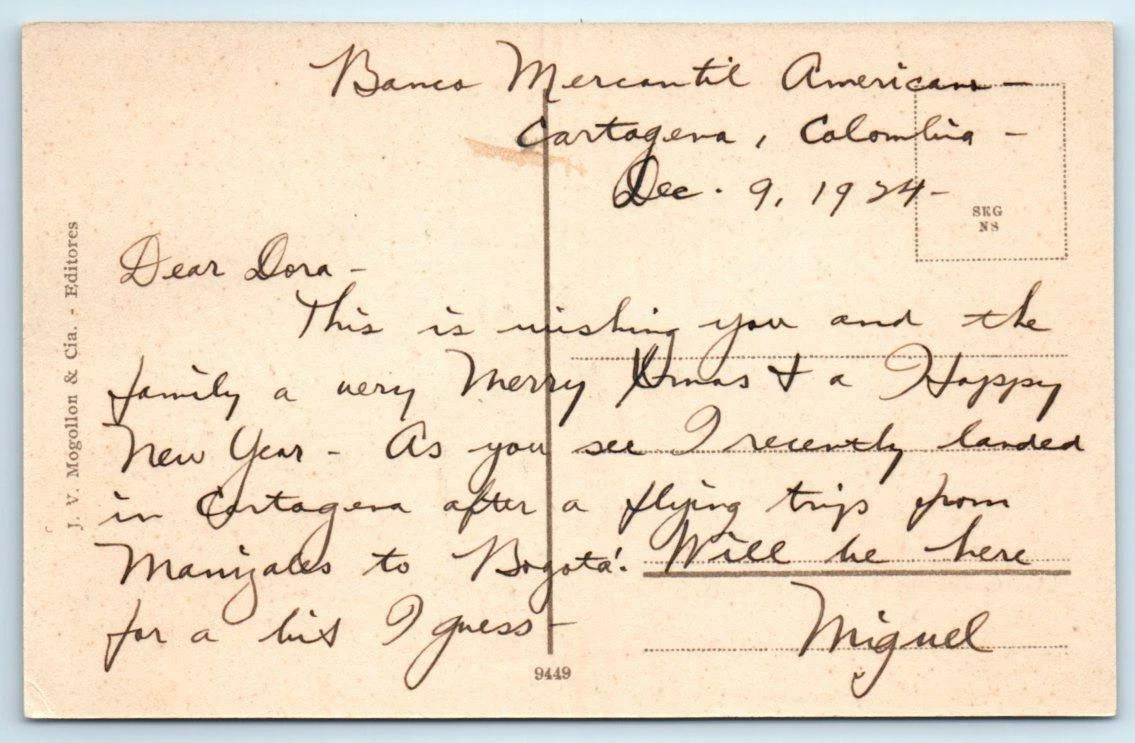 Banco Mercantil Americano -
Cartagena, Colombia -
Dec. 9, 1924 -
SEG
NS
J. V. Mogollon & Cia. - Editores
Dear Dora -
This is wishing you and the
family a very Merry Xmas & a Happy
New Year - As you see I recently landed
in Cartagena after a flying trip from
Manizales to Bogotá. Will be here
for a bit I guess -
Miguel
9449